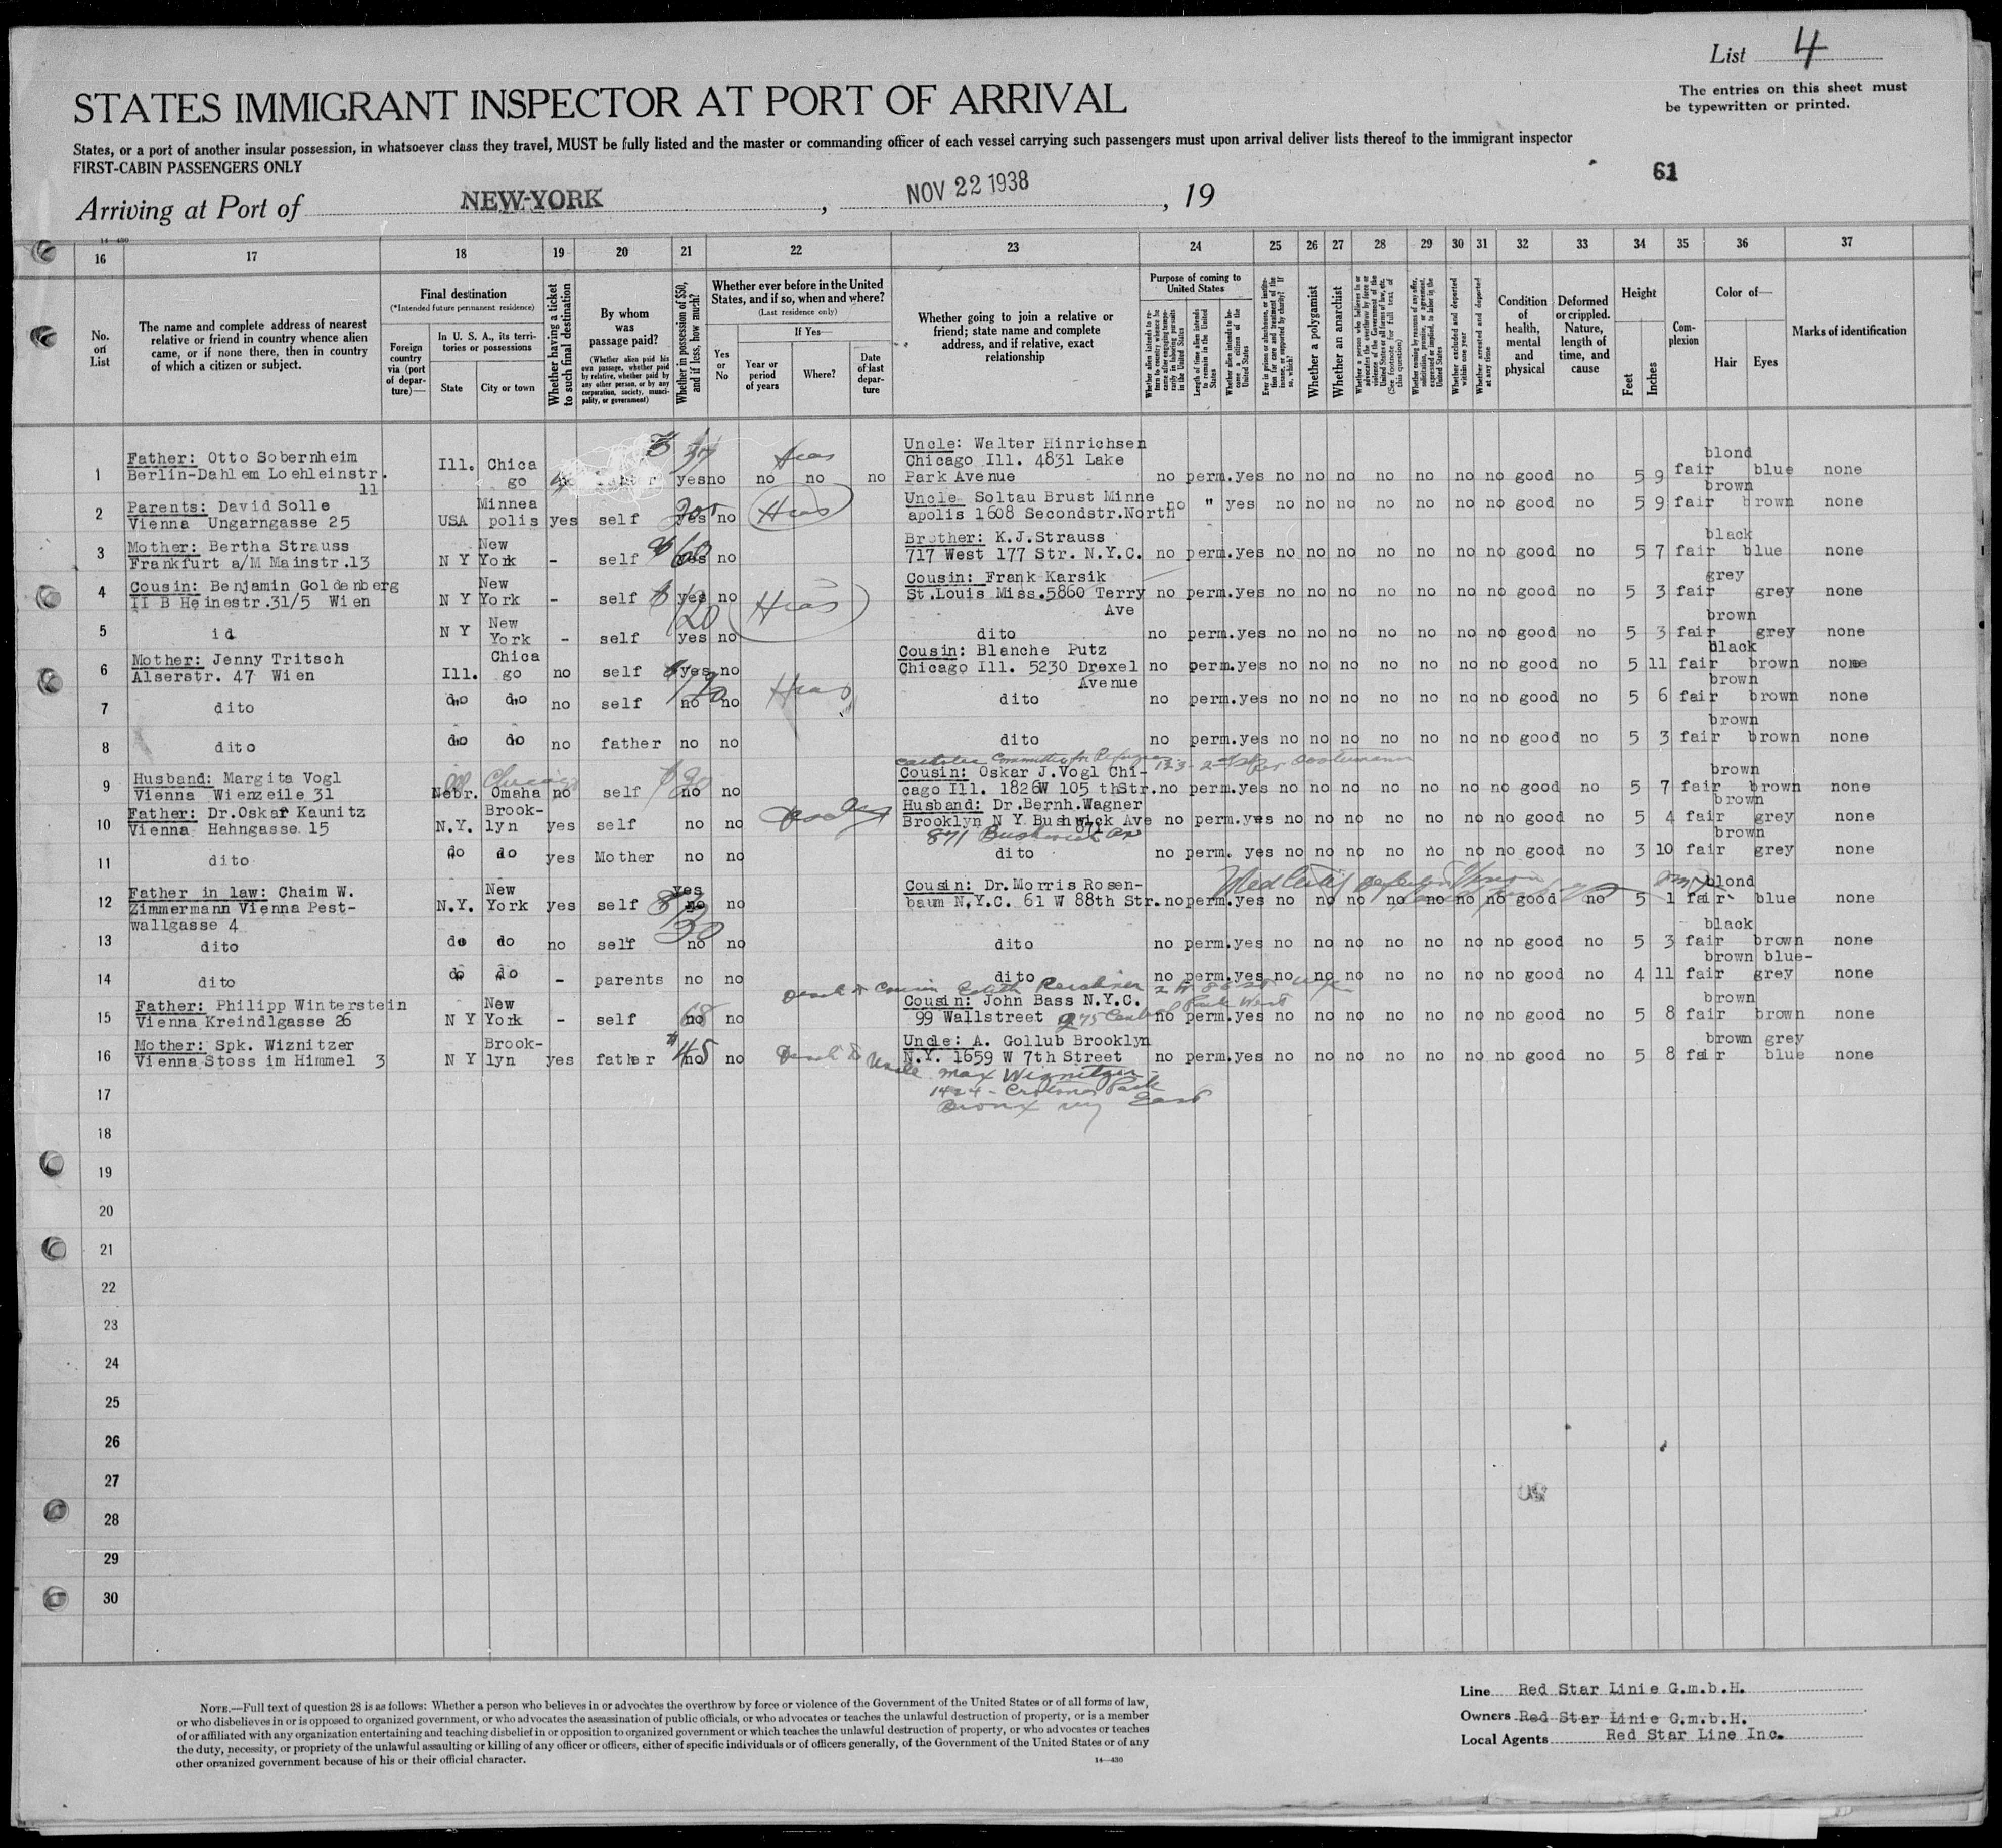 List 4
The entries on this sheet must
be typewritten or printed.
STATES IMMIGRANT INSPECTOR AT PORT OF ARRIVAL
States, or a port of another insular possession, in whatsoever class they travel, MUST be fully listed and the master or commanding officer of each vessel carrying such passengers must upon arrival deliver lists thereof to the immigrant inspector
FIRST-CABIN PASSENGERS ONLY
61
Arriving at Port of NEW-YORK, NOV 22 1938, 19
14—430
16 17 18 19 20 21 22 23 24 25 26 27 28 29 30 31 32 33 34 35 36 37
No. on List
The name and complete address of nearest
relative or friend in country whence alien
came, or if none there, then in country
of which a citizen or subject.
Final destination
(*Intended future permanent residence)
Foreign country via (port of departure)—
In U. S. A., its territories or possessions
State City or town
Whether having a ticket to such final destination
By whom was passage paid?
(Whether alien paid his own passage, whether paid by relative, whether paid by any other person, or by any corporation, society, municipality, or government)
Whether in possession of $50, and if less, how much?
Whether ever before in the United States, and if so, when and where?
(Last residence only)
Yes or No
If Yes—
Year or period of years
Where?
Date of last departure
Whether going to join a relative or
friend; state name and complete
address, and if relative, exact
relationship
Purpose of coming to United States
Length of time alien intends to remain in the United States
Whether alien intends to become a citizen of the United States
Whether a polygamist
Whether an anarchist
Whether excluded and deported within one year
Whether arrested and deported at any time
Condition of health, mental and physical
Deformed or crippled. Nature, length of time, and cause
Height
Feet Inches
Complexion
Color of—
Hair Eyes
Marks of identification
1 Father: Otto Sobernheim
Berlin-Dahlem Loehleinstr. 11
Ill. Chica go yes no no no no
Uncle: Walter Hinrichsen
Chicago Ill. 4831 Lake
Park Avenue
no perm. yes no no no no no no no good no 5 9 fair blond blue none
2 Parents: David Solle
Vienna Ungarngasse 25
USA Minnea polis yes self yes no Hias
Uncle Soltau Brust Minne
apolis 1608 Secondstr.North
no " yes no no no no no no no good no 5 9 fair brown brown none
3 Mother: Bertha Strauss
Frankfurt a/M Mainstr.13
N Y New York - self 60 yes no
Brother: K.J.Strauss
717 West 177 Str. N.Y.C.
no perm. yes no no no no no no no good no 5 7 fair black blue none
4 Cousin: Benjamin Goldenberg
II B Heinestr.31/5 Wien
N Y New York - self yes no Hias
Cousin: Frank Karsik
St.Louis Miss.5860 Terry
Ave
no perm. yes no no no no no no no good no 5 3 fair grey grey none
5 id
N Y New York - self 120 yes no
dito
no perm. yes no no no no no no no good no 5 3 fair brown grey none
6 Mother: Jenny Tritsch
Alserstr. 47 Wien
Ill. Chica go no self yes no
Cousin: Blanche Putz
Chicago Ill. 5230 Drexel
Avenue
no perm. yes no no no no no no no good no 5 11 fair black brown none
7 dito
do do no self no no Hias
dito
no perm. yes no no no no no no no good no 5 6 fair brown brown none
8 dito
do do no father no no
dito
no perm. yes no no no no no no no good no 5 3 fair brown brown none
9 Husband: Margita Vogl
Vienna Wienzeile 31
Ill Chicago
Nebr. Omaha no self no no
Catholic Committee for Refugees
Cousin: Oskar J.Vogl Chi-
cago Ill. 1826W 105 thStr.
no perm. yes no no no no no no no good no 5 7 fair brown brown none
10 Father: Dr.Oskar Kaunitz
Vienna Hahngasse 15
N.Y. Brook- lyn yes self no no
Husband: Dr.Bernh.Wagner
Brooklyn N Y Bushwick Ave
871
871 Bushwick Av
no perm. yes no no no no no no no good no 5 4 fair brown grey none
11 dito
do do yes Mother no no
dito
no perm. yes no no no no no no no good no 3 10 fair brown grey none
12 Father in law: Chaim W.
Zimmermann Vienna Pest-
wallgasse 4
N.Y. New York yes self yes no no
Cousin: Dr.Morris Rosen-
baum N.Y.C. 61 W 88th Str.
no perm. yes no no no no no no no good no 5 1 fair blond blue none
13 dito
do do no self no no
dito
no perm. yes no no no no no no no good no 5 3 fair black brown none
14 dito
do do - parents no no
dito
no perm. yes no no no no no no no good no 4 11 fair brown blue-grey none
15 Father: Philipp Winterstein
Vienna Kreindlgasse 26
N Y New York - self 68 no no
Cousin: John Bass N.Y.C.
99 Wallstreet 275 Central Park West
no perm. yes no no no no no no no good no 5 8 fair brown brown none
16 Mother: Spk. Wiznitzer
Vienna Stoss im Himmel 3
N Y Brook- lyn yes father 45 no no
Uncle: A. Gollub Brooklyn
N.Y. 1659 W 7th Street
no perm. yes no no no no no no no good no 5 8 fair brown grey blue none
Uncle Max Wiznitzer
1424 - Crotona Park
Bronx NY East
17
18
19
20
21
22
23
24
25
26
27
28
29
30
NOTE.—Full text of question 28 is as follows: Whether a person who believes in or advocates the overthrow by force or violence of the Government of the United States or of all forms of law,
or who disbelieves in or is opposed to organized government, or who advocates the assassination of public officials, or who advocates or teaches the unlawful destruction of property, or is a member
of or affiliated with any organization entertaining and teaching disbelief in or opposition to organized government or which teaches the unlawful destruction of property, or who advocates or teaches
the duty, necessity, or propriety of the unlawful assaulting or killing of any officer or officers, either of specific individuals or of officers generally, of the Government of the United States or of any
other organized government because of his or their official character.
14—430
Line Red Star Linie G.m.b.H.
Owners Red Star Linie G.m.b.H.
Local Agents Red Star Line Inc.